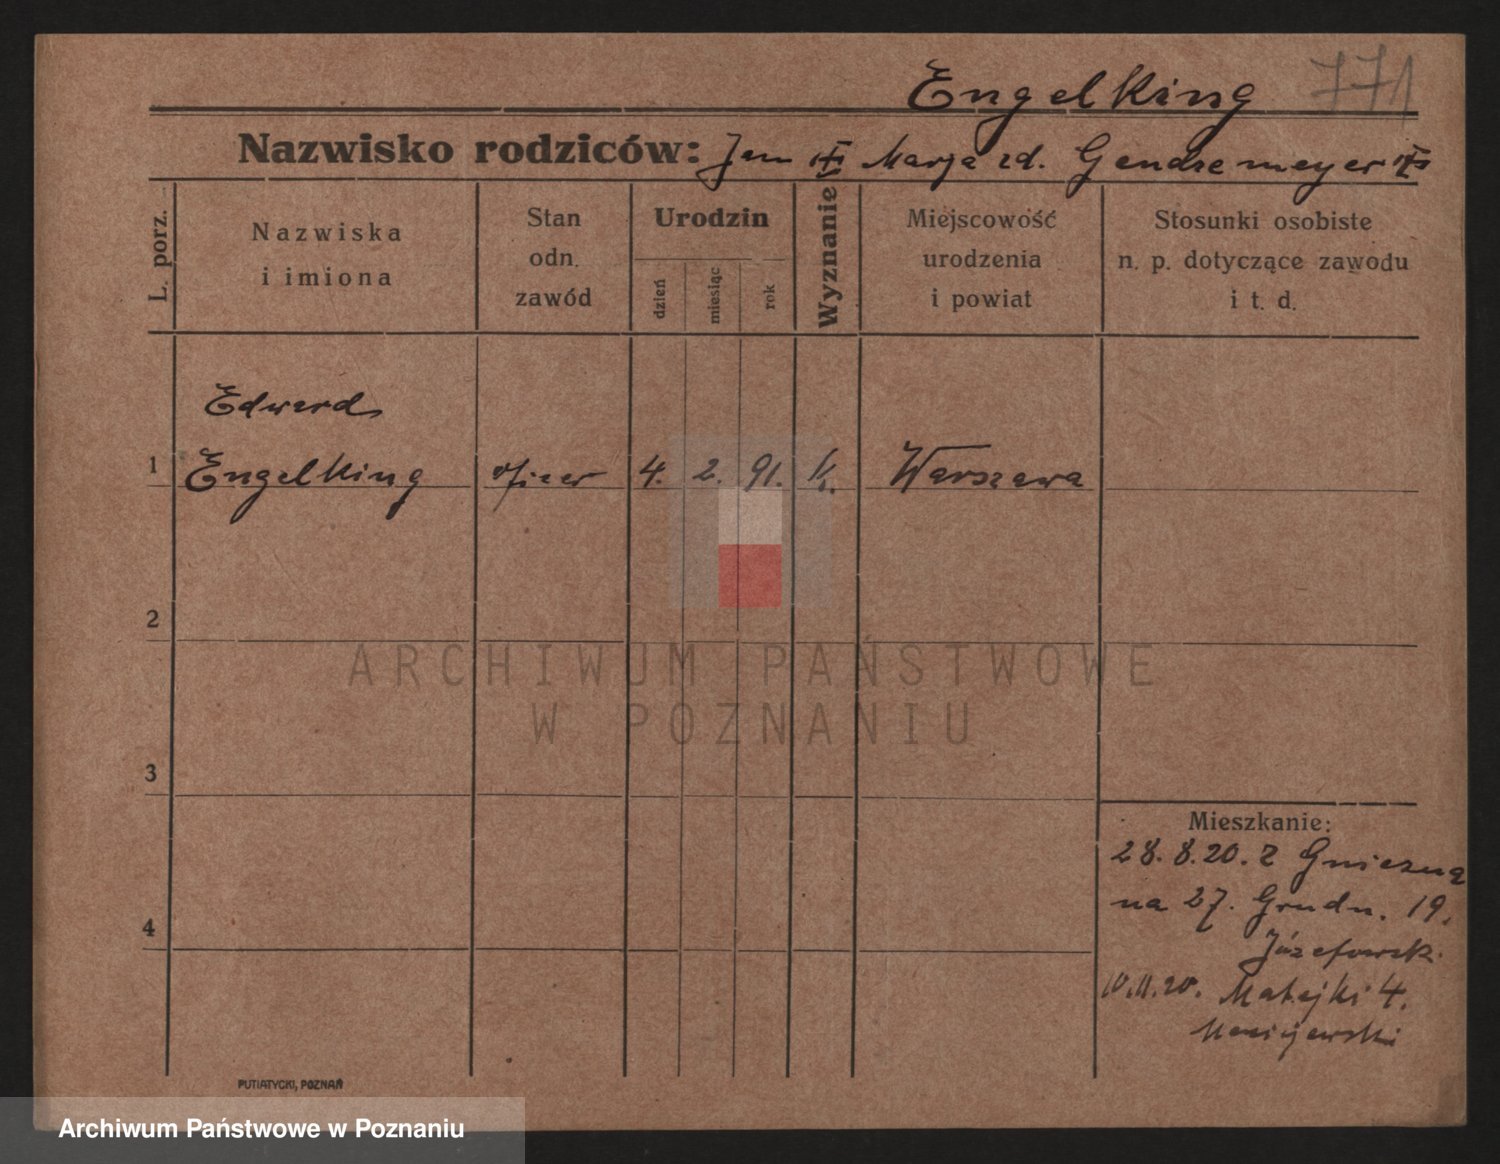 Engelking 771
Nazwisko rodziców: Jan Marja zd.
L. porz.
Nazwiska
i imiona
Stan
odn.
zawód
Urodzin
dzień
miesiąc
rok
Wyznanie
Miejscowość
urodzenia
i powiat
Stosunki osobiste
n. p. dotyczące zawodu
i t. d.
Edward
1 Engelking oficer 4. 2. 91. k. Warszawa
2
ARCHIWUM PAŃSTWOWE
W POZNANIU
3
Mieszkanie:
28. 8. 20. z Gniezna
na 27. Grudn. 19.
4
Józefowsk.
10.11.20. Matejki 4.
Maciejewski
PUTIATYCKI, POZNAŃ
Archiwum Państwowe w Poznaniu